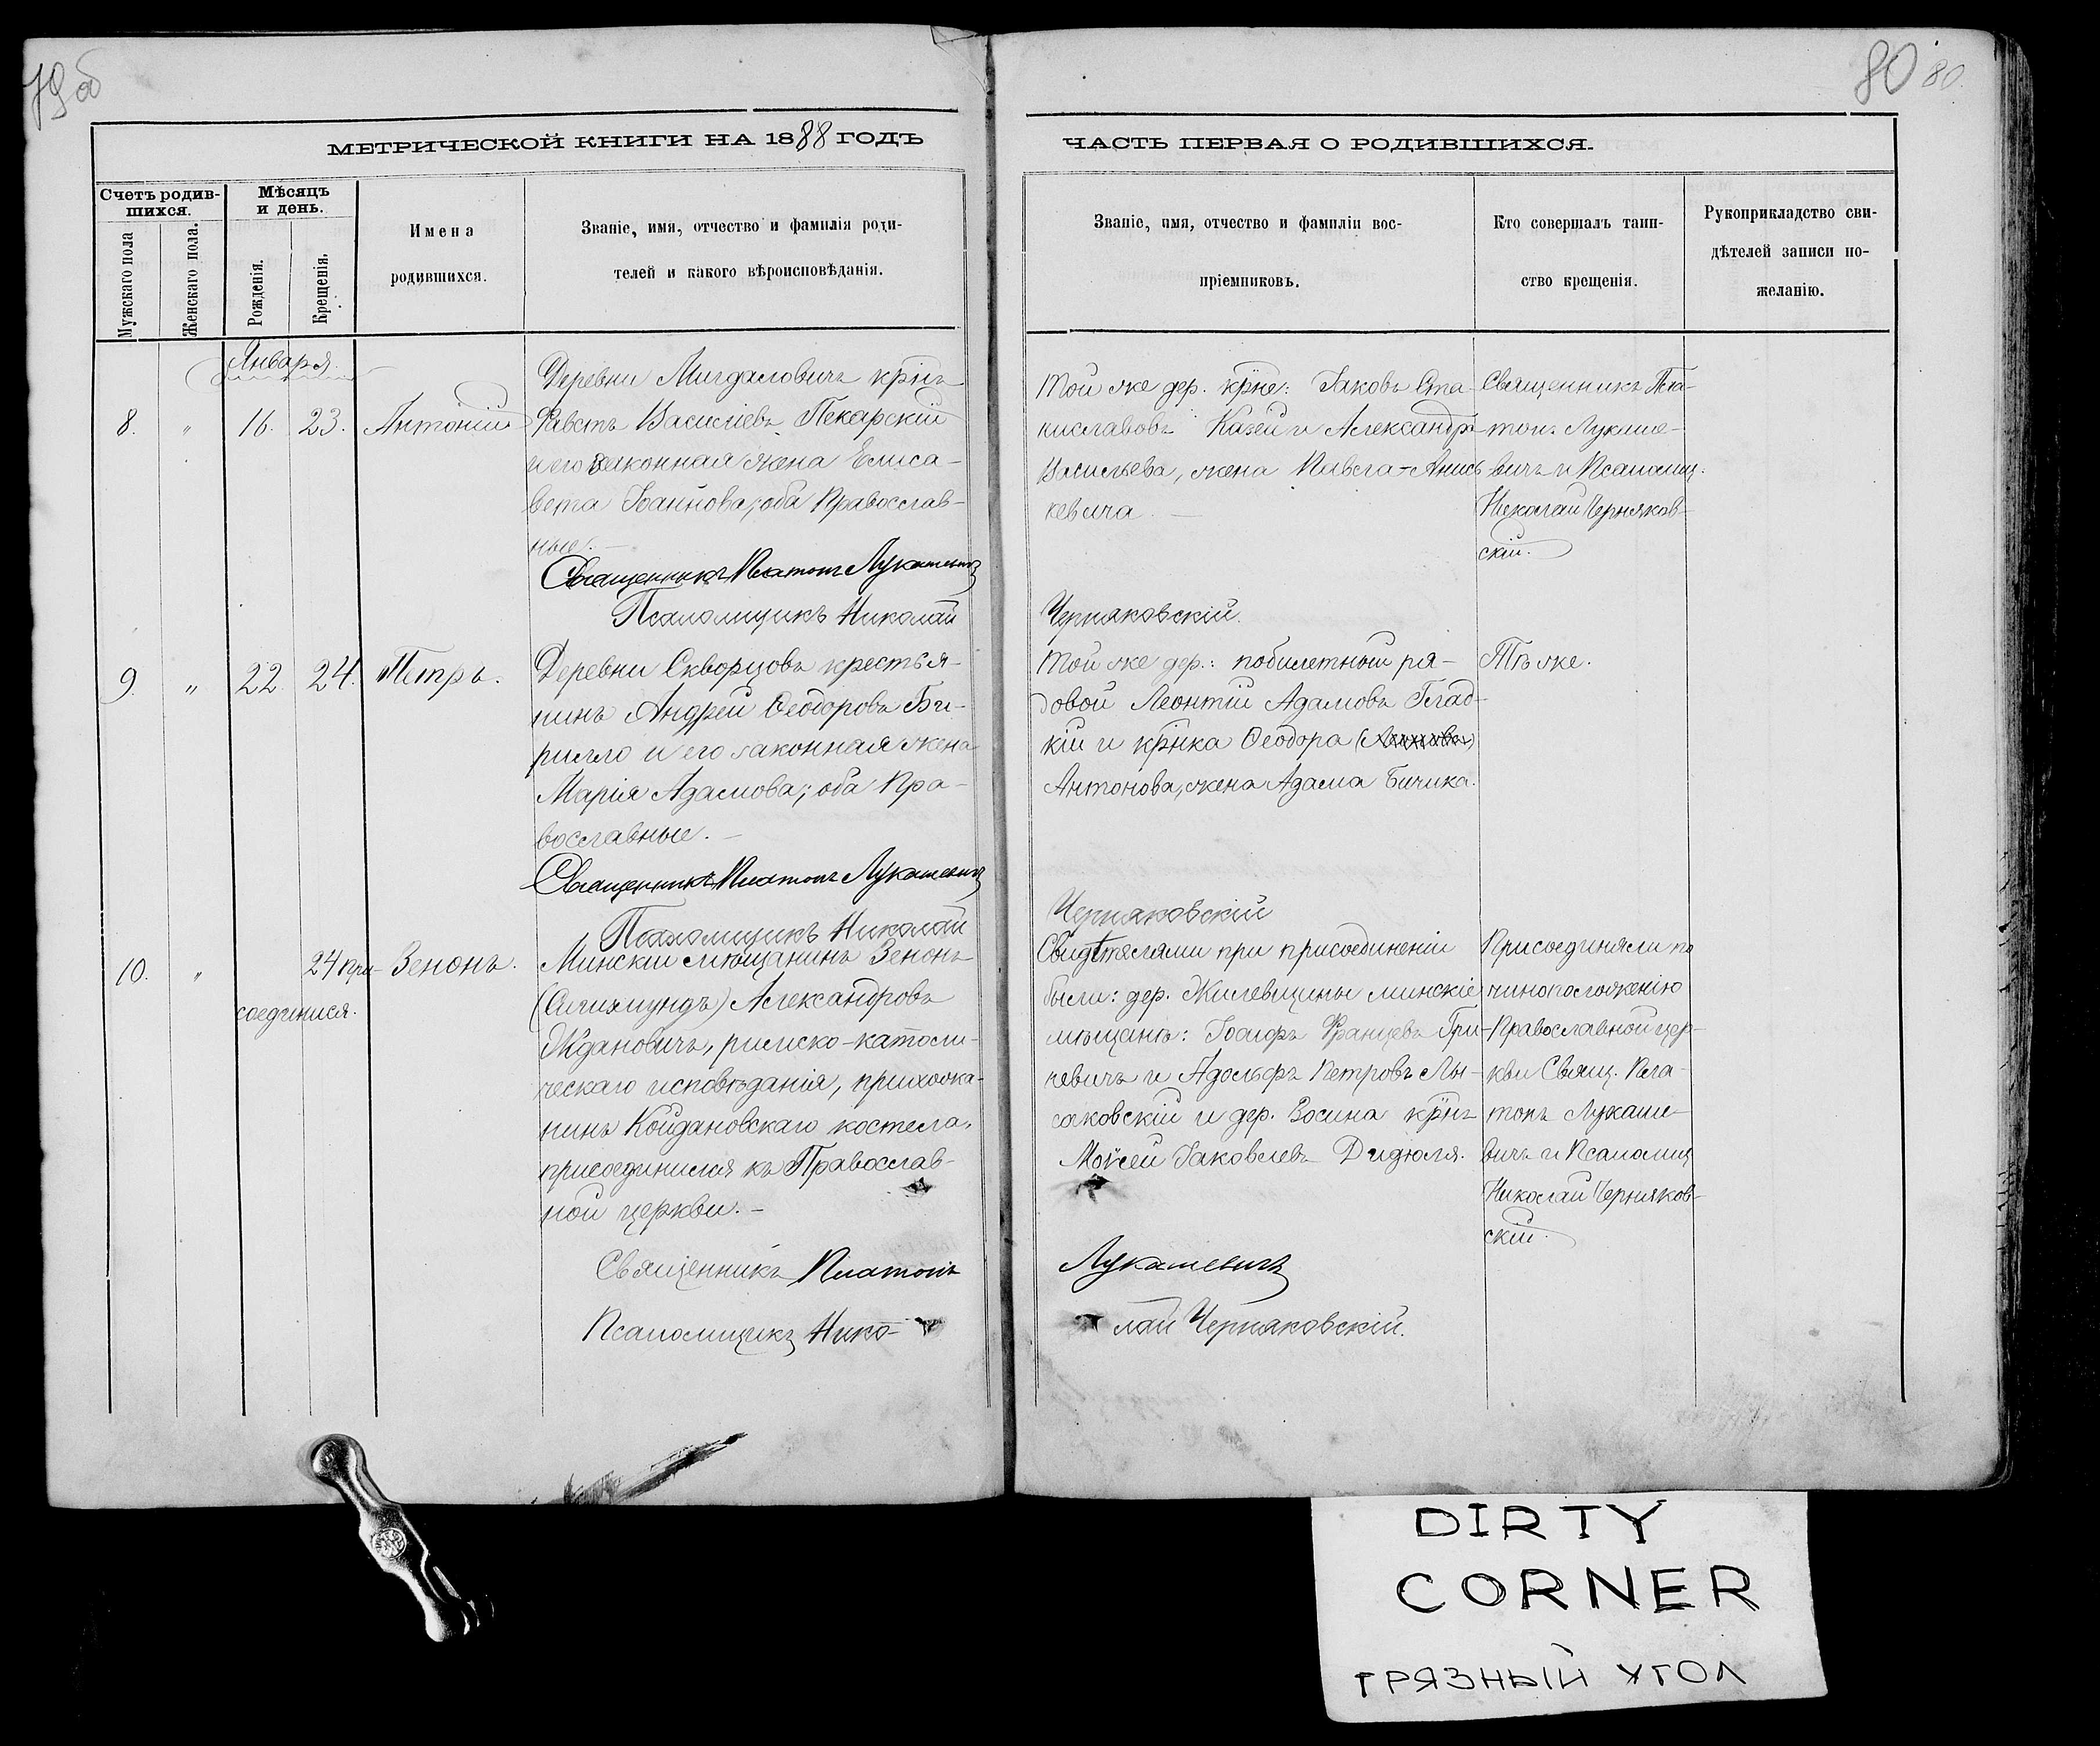 79 об
80 80.
МЕТРИЧЕСКОЙ КНИГИ НА 1888 ГОДЪ
ЧАСТЬ ПЕРВАЯ О РОДИВШИХСЯ.
Счетъ родив-
шихся.
Мужскаго пола
Женскаго пола.
Мѣсяцъ
и день.
Рожденія.
Крещенія.
Имена
родившихся.
Званіе, имя, отчество и фамилія роди-
телей и какого вѣроисповѣданія.
Званіе, имя, отчество и фамиліи вос-
пріемниковъ.
Кто совершалъ таин-
ство крещенія.
Рукоприкладство сви-
дѣтелей записи по-
желанію.
Января
8. " 16. 23. Антоній
Деревни Мигдаловичъ крнъ
Фавстъ Василіевъ Пекарскій
и его законная жена Елиса-
вета Іоаннова; оба Православ-
ные. —
Священникъ Платонъ Лукашевичъ
Псаломщикъ Николай
Той же дер. крне: Іаковъ Ста-
ниславовъ Казей и Александра
Васильева, жена Павла Анись
кевича. —
Черняковскій.
Священникъ Пла-
тонъ Лукаше-
вичъ и Псаломщ.
Николай Черняков-
скій.
9. " 22. 24. Петръ.
Деревни Скворцовъ крестья-
нинъ Андрей Ѳеодоровъ Би-
рилло и его законная жена
Марія Адамова; оба Пра-
вославные. —
Священникъ Платонъ Лукашевичъ
Псаломщикъ Николай
Той же дер.: побилетный ря-
довой Леонтій Адамовъ Глад-
кій и крнка Ѳеодора
Антонова, жена Адама Бичика.
Черняковскій
Тѣ же.
10. " 24 при-
соединился.
Зенонъ.
Минскій мѣщанинъ Зенонъ
(Сигизмундъ) Александровъ
Ждановичъ, римско-католи-
ческаго исповѣданія, прихожа-
нинъ Койдановскаго костела,
присоединился къ Православ-
ной церкви. —
Священникъ Платонъ
Псаломщикъ Нико-
Свидѣтелями при присоединеніи
были: дер. Жилевщины минскіе
мѣщане: Іосифъ Францевъ Гри-
невичъ и Адольфъ Петровъ Лы-
саковскій и дер. Зосина крнъ
Моѵсей Іаковлевъ Дидюля.
Лукашевичъ
лай Черняковскій.
Присоединяли по
чиноположенію
Православной цер-
кви Свящ. Пла-
тонъ Лукаше-
вичъ и Псаломщ
Николай Черняков-
скій.
DIRTY
CORNER
ГРЯЗНЫЙ УГОЛ